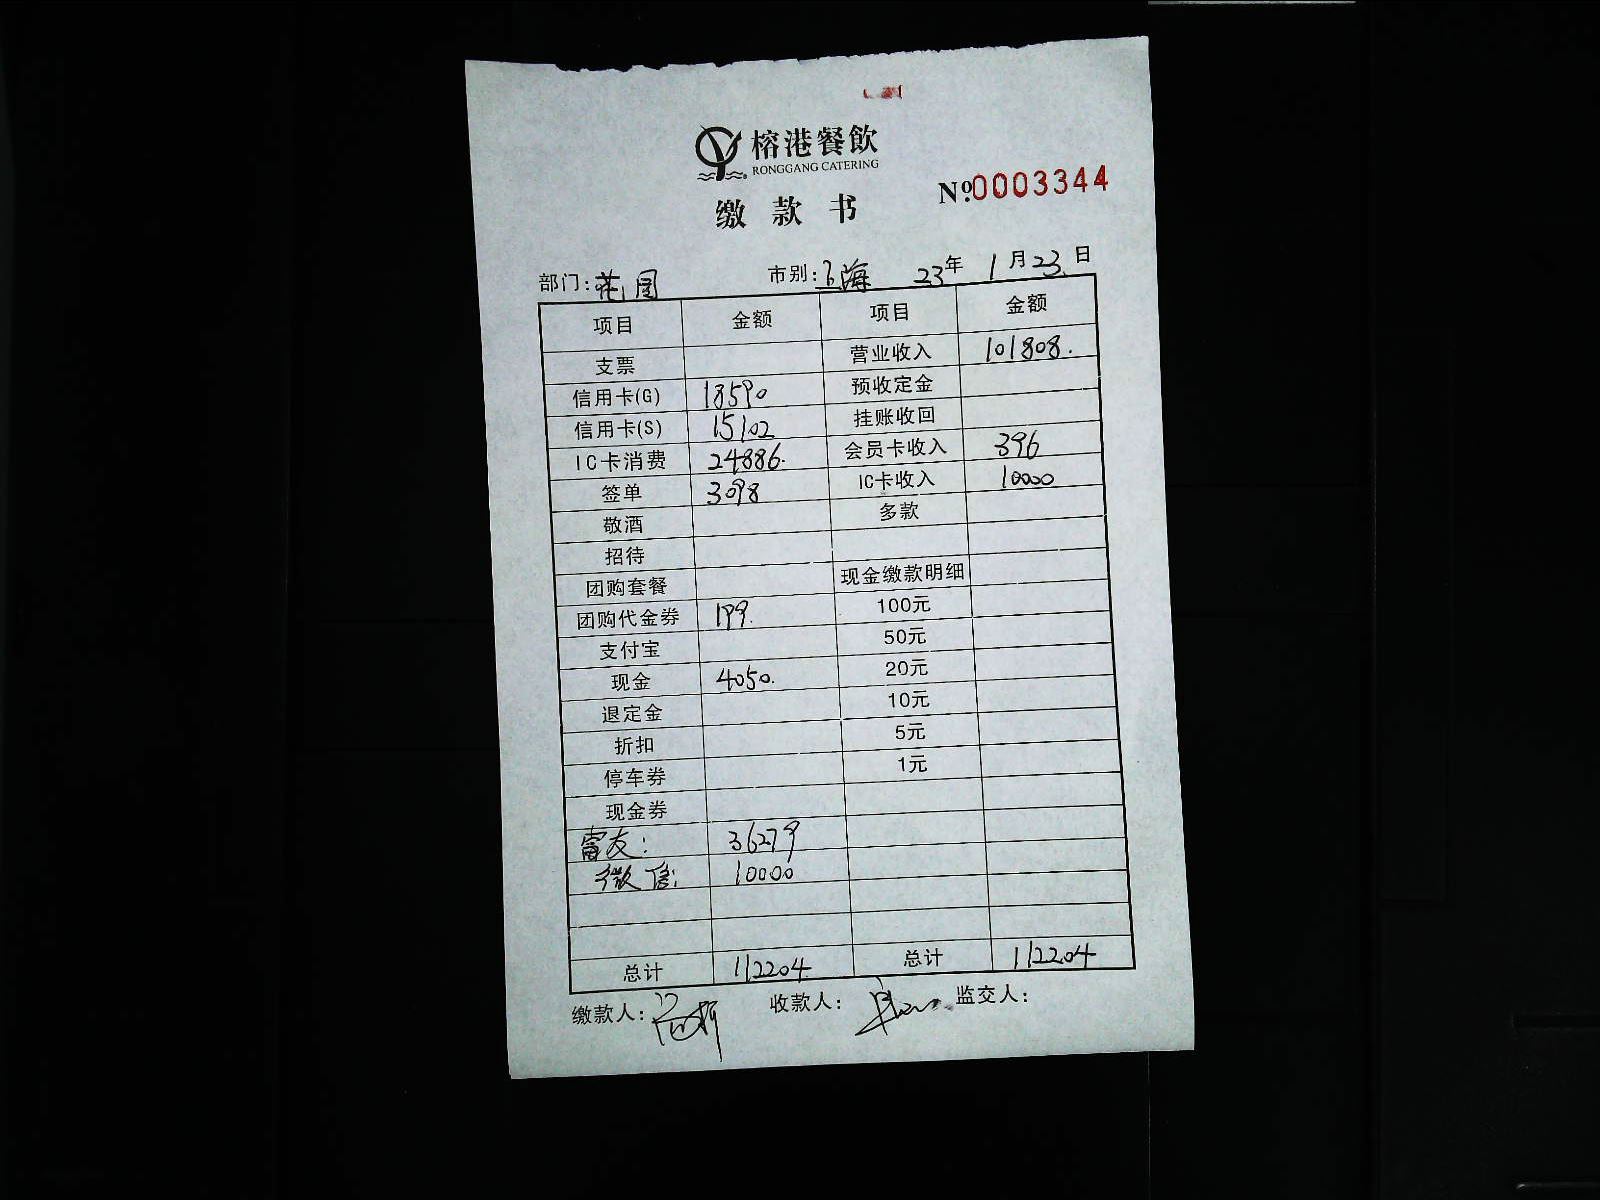 榕港餐飲
RONGGANG CATERING
缴款书
Nº:0003344
部门:花园 市别:上海 23年1月23日
项目 金额 项目 金额
支票 营业收入 101808.
信用卡(G) 18590 预收定金
信用卡(S) 15102 挂账收回
IC卡消费 24886. 会员卡收入 396
签单 3098 IC卡收入 10000
敬酒 多款
招待
团购套餐 现金缴款明细
团购代金券 199. 100元
支付宝 50元
现金 4050. 20元
退定金 10元
折扣 5元
停车券 1元
现金券
富友: 36279
微信: 10000
总计 112204 总计 112204
缴款人: 收款人: 监交人: